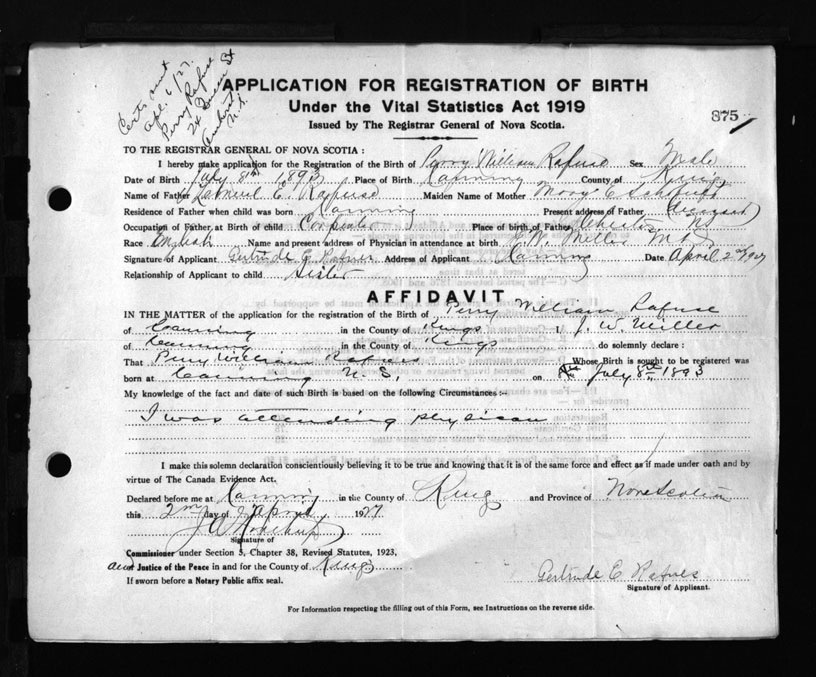 Certs sent
Apl. 6/27.
Perry Rafuse
24 Queen St
Amherst
N.S.
APPLICATION FOR REGISTRATION OF BIRTH
Under the Vital Statistics Act 1919
875
Issued by The Registrar General of Nova Scotia.
TO THE REGISTRAR GENERAL OF NOVA SCOTIA :
I hereby make application for the Registration of the Birth of Perry William Rafuse Sex Male
Date of Birth July 8th 1893 Place of Birth Canning County of Kings
Name of Father E. Rafuse Maiden Name of Mother Mary E
Residence of Father when child was born Canning Present address of Father Deceased
Occupation of Father at Birth of Child Carpenter Place of birth of Father Chester NS
Race English Name and present address of Physician in attendance at birth J.W. Miller M.D.
Signature of Applicant Gertrude E Rafuse Address of Applicant Canning Date April 2nd 1927
Relationship of Applicant to child Sister
AFFIDAVIT
IN THE MATTER of the application for the registration of the Birth of Perry William Rafuse
of Canning in the County of Kings I, J. W. Miller
of Canning in the County of Kings do solemnly declare :
That Perry William Rafuse Whose Birth is sought to be registered was
born at Canning N.S. on July 8th 1893
My knowledge of the fact and date of such Birth is based on the following Circumstances :-
I was attending physican
I make this solemn declaration conscientiously believing it to be true and knowing that it is of the same force and effect as if made under oath and by
virtue of The Canada Evidence Act.
Declared before me at Canning in the County of Kings and Province of Nova Scotia
this 2nd day of April 1927
Signature of
Commissioner under Section 5, Chapter 38, Revised Statutes, 1923,
and Justice of the Peace in and for the County of Kings
If sworn before a Notary Public affix seal.
Gertrude E Rafuse
Signature of Applicant.
For Information respecting the filling out of this Form, see Instructions on the reverse side.